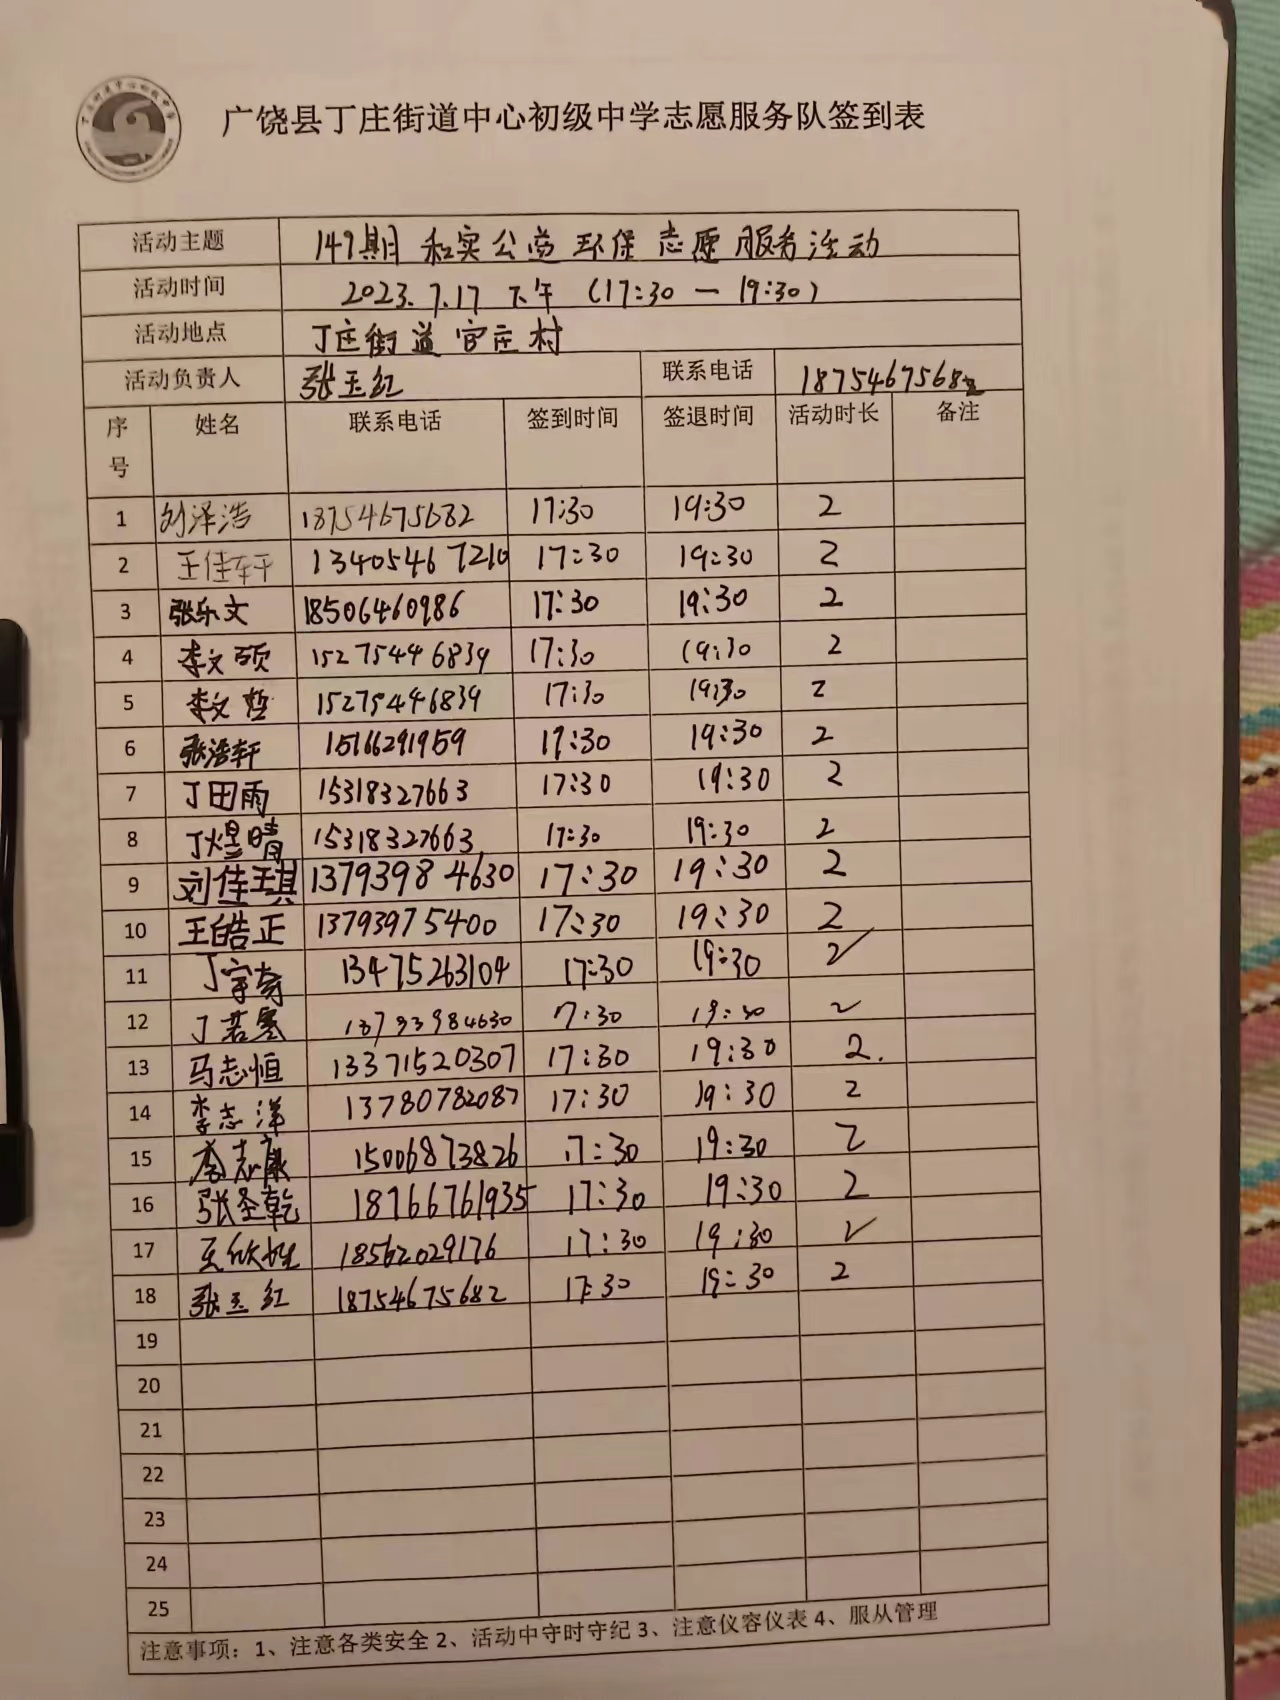 广饶县丁庄街道中心初级中学志愿服务队签到表
活动主题 149期 和实公益 环保 志愿服务活动
活动时间 2023.7.17 下午 (17:30 — 19:30)
活动地点 丁庄街道官庄村
活动负责人 张玉红 联系电话 18754675682
序号 姓名 联系电话 签到时间 签退时间 活动时长 备注
1 刘泽浩 18754675682 17:30 19:30 2
2 王佳轩 13405467210 17:30 19:30 2
3 张乐文 18506460986 17:30 19:30 2
4 李文硕 15275446839 17:30 19:30 2
5 李文哲 15275446839 17:30 19:30 2
6 张浩轩 15166291959 17:30 19:30 2
7 丁田雨 15318327663 17:30 19:30 2
8 丁煜晴 15318327663 17:30 19:30 2
9 刘佳琪 13793984630 17:30 19:30 2
10 王皓正 13793975400 17:30 19:30 2
11 丁宇 13475263104 17:30 19:30 2
12 丁若 13793984630 7:30 19:30 2
13 马志恒 13371520307 17:30 19:30 2.
14 李志洋 13780782087 17:30 19:30 2
15 李志康 15006873826 17:30 19:30 2
16 张圣乾 18766761935 17:30 19:30 2
17 王欣 18562029176 17:30 19:30 2
18 张玉红 18754675682 17:30 19:30 2
19
20
21
22
23
24
25
注意事项：1、注意各类安全 2、活动中守时守纪 3、注意仪容仪表 4、服从管理